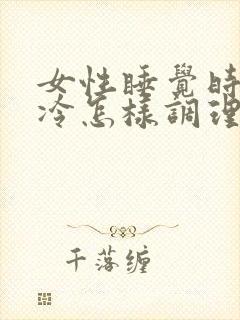 女性睡覺時
冷怎樣調理
千落缠